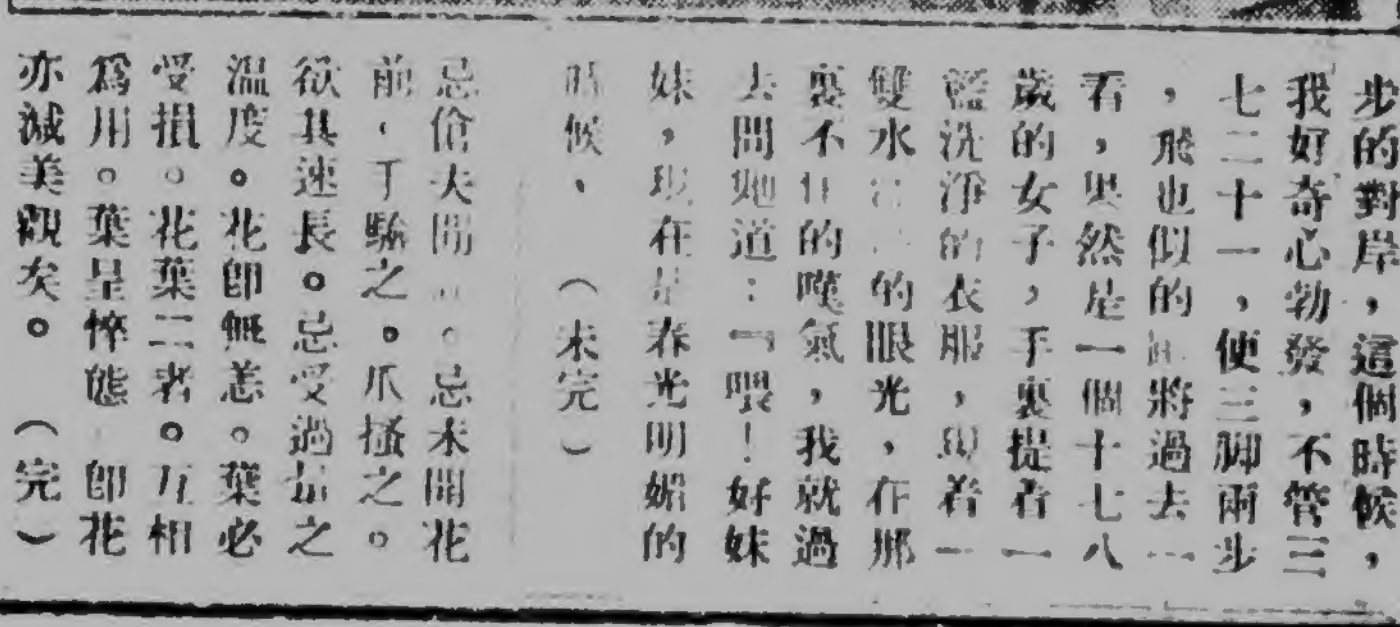 步的對岸，這個時候，
我好奇心勃發，不管三
七二十一，便三脚兩步
，飛也似的將過去一
看，果然是一個十七八
歲的女子，手裏提着一
籃洗淨的衣服，着一
雙水的眼光，在那
裏不住的嘆氣，我就過
去問她道：「喂！好妹
妹，現在是春光明媚的
時候、　　（未完）
忌傖夫聞。忌未開花
前，手驗之。爪搔之。
欲其速長。忌受過量之
溫度。花卽無恙。葉必
受損。花葉二者。互相
爲用。葉呈悴態　卽花
亦減美觀矣。　（完）